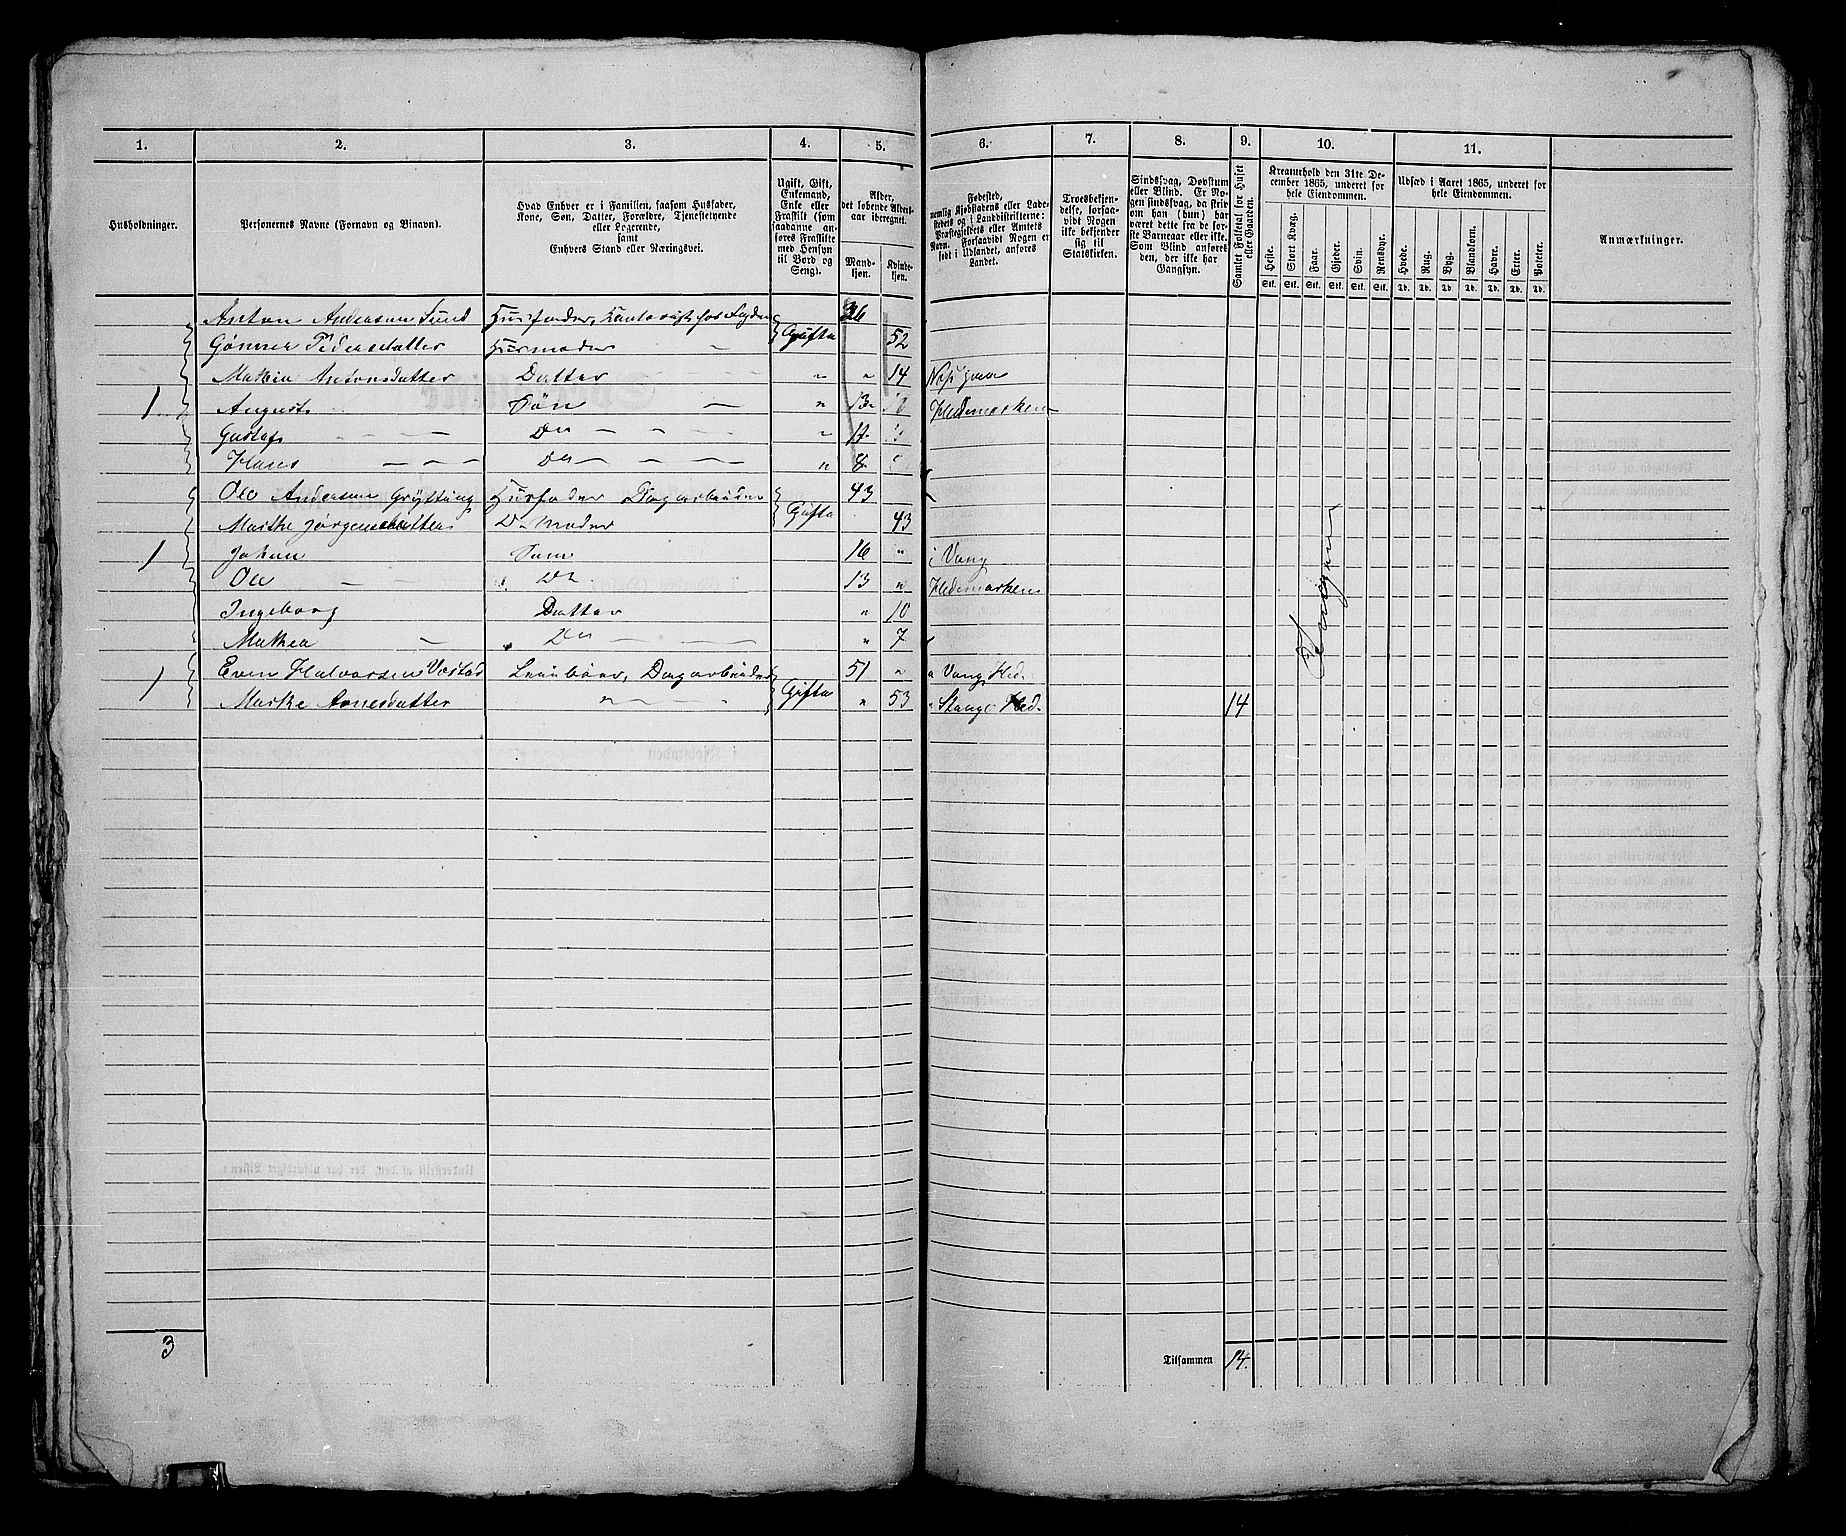 1. 2. 3. 4. 5. 6. 7. 8. 9. 10. 11.
Husholdninger.
Personernes Navne (Fornavn og Binavn).
Hvad Enhver er i Familien, saasom Husfader,
Kone, Søn, Datter, Forældre, Tjenestetyende
eller Logerende,
samt
Enhvers Stand eller Næringsvei.
Ugift, Gift,
Enkemand,
Enke eller
Fraskilt (som
saadanne an-
føres Fraskilte
med Hensyn
til Bord og
Seng).
Alder,
det løbende Alders-
aar iberegnet.
Mand-
kjøn.
Kvinde-
kjøn.
Fødested,
nemlig Kjøbstadens eller Lade-
stedets og i Landdistrikterne:
Præstegjeldets eller Amtets
Navn. Forsaavidt Nogen er
født i Udlandet, anføres
Landet.
Troesbekjen-
delse, forsaa-
vidt Nogen
ikke bekjender
sig til
Statskirken.
Sindssvag, Døvstum
eller Blind. Er No-
gen sindssvag, da skriv
om han (hun) har
været dette fra de før-
ste Barneaar eller ikke.
Som Blind anføres
den, der ikke har
Gangsyn.
Samlet Folketal for Huset
eller Gaarden.
Kreaturhold den 31te De-
cember 1865, underet for
hele Eiendommen.
Heste. Stort Kvæg. Faar. Gjeder. Svin. Rensdyr.
Stk. Stk. Stk. Stk. Stk. Stk.
Udsæd i Aaret 1865, underet for
hele Eiendommen.
Hvede. Rug. Byg. Blandkorn. Havre. Erter. Poteter.
Td. Td. Td. Td. Td. Td. Td.
Anmærkninger.
Anton Andersen Lund Husfader, 36
Gønner Pedersdatter Husmoder - Gifte 52
Mathia Antonsdatter Datter " " 14
1 August Søn - " 13 Hedemarken
Gustaf - - - Do - - - " 17
Hans - - - Do - - - " 8
Ole Andersen Gryttung Husfader Dagarbeider 43
Marthe Jørgensdatter Do Moder Gifte 43
1 Johan Sønn 16 " i Vang
Ole - - Do 13 " Hedemarken
Ingeborg Datter " 10
Mathea - Do - - - " 7
1 Even Halvorsen Dagarbeider 51 " Vang Hed.
Marthe Arnesdatter " Gifte " 53 Stange Hed. 14
Ingen
3
Tilsammen 14.